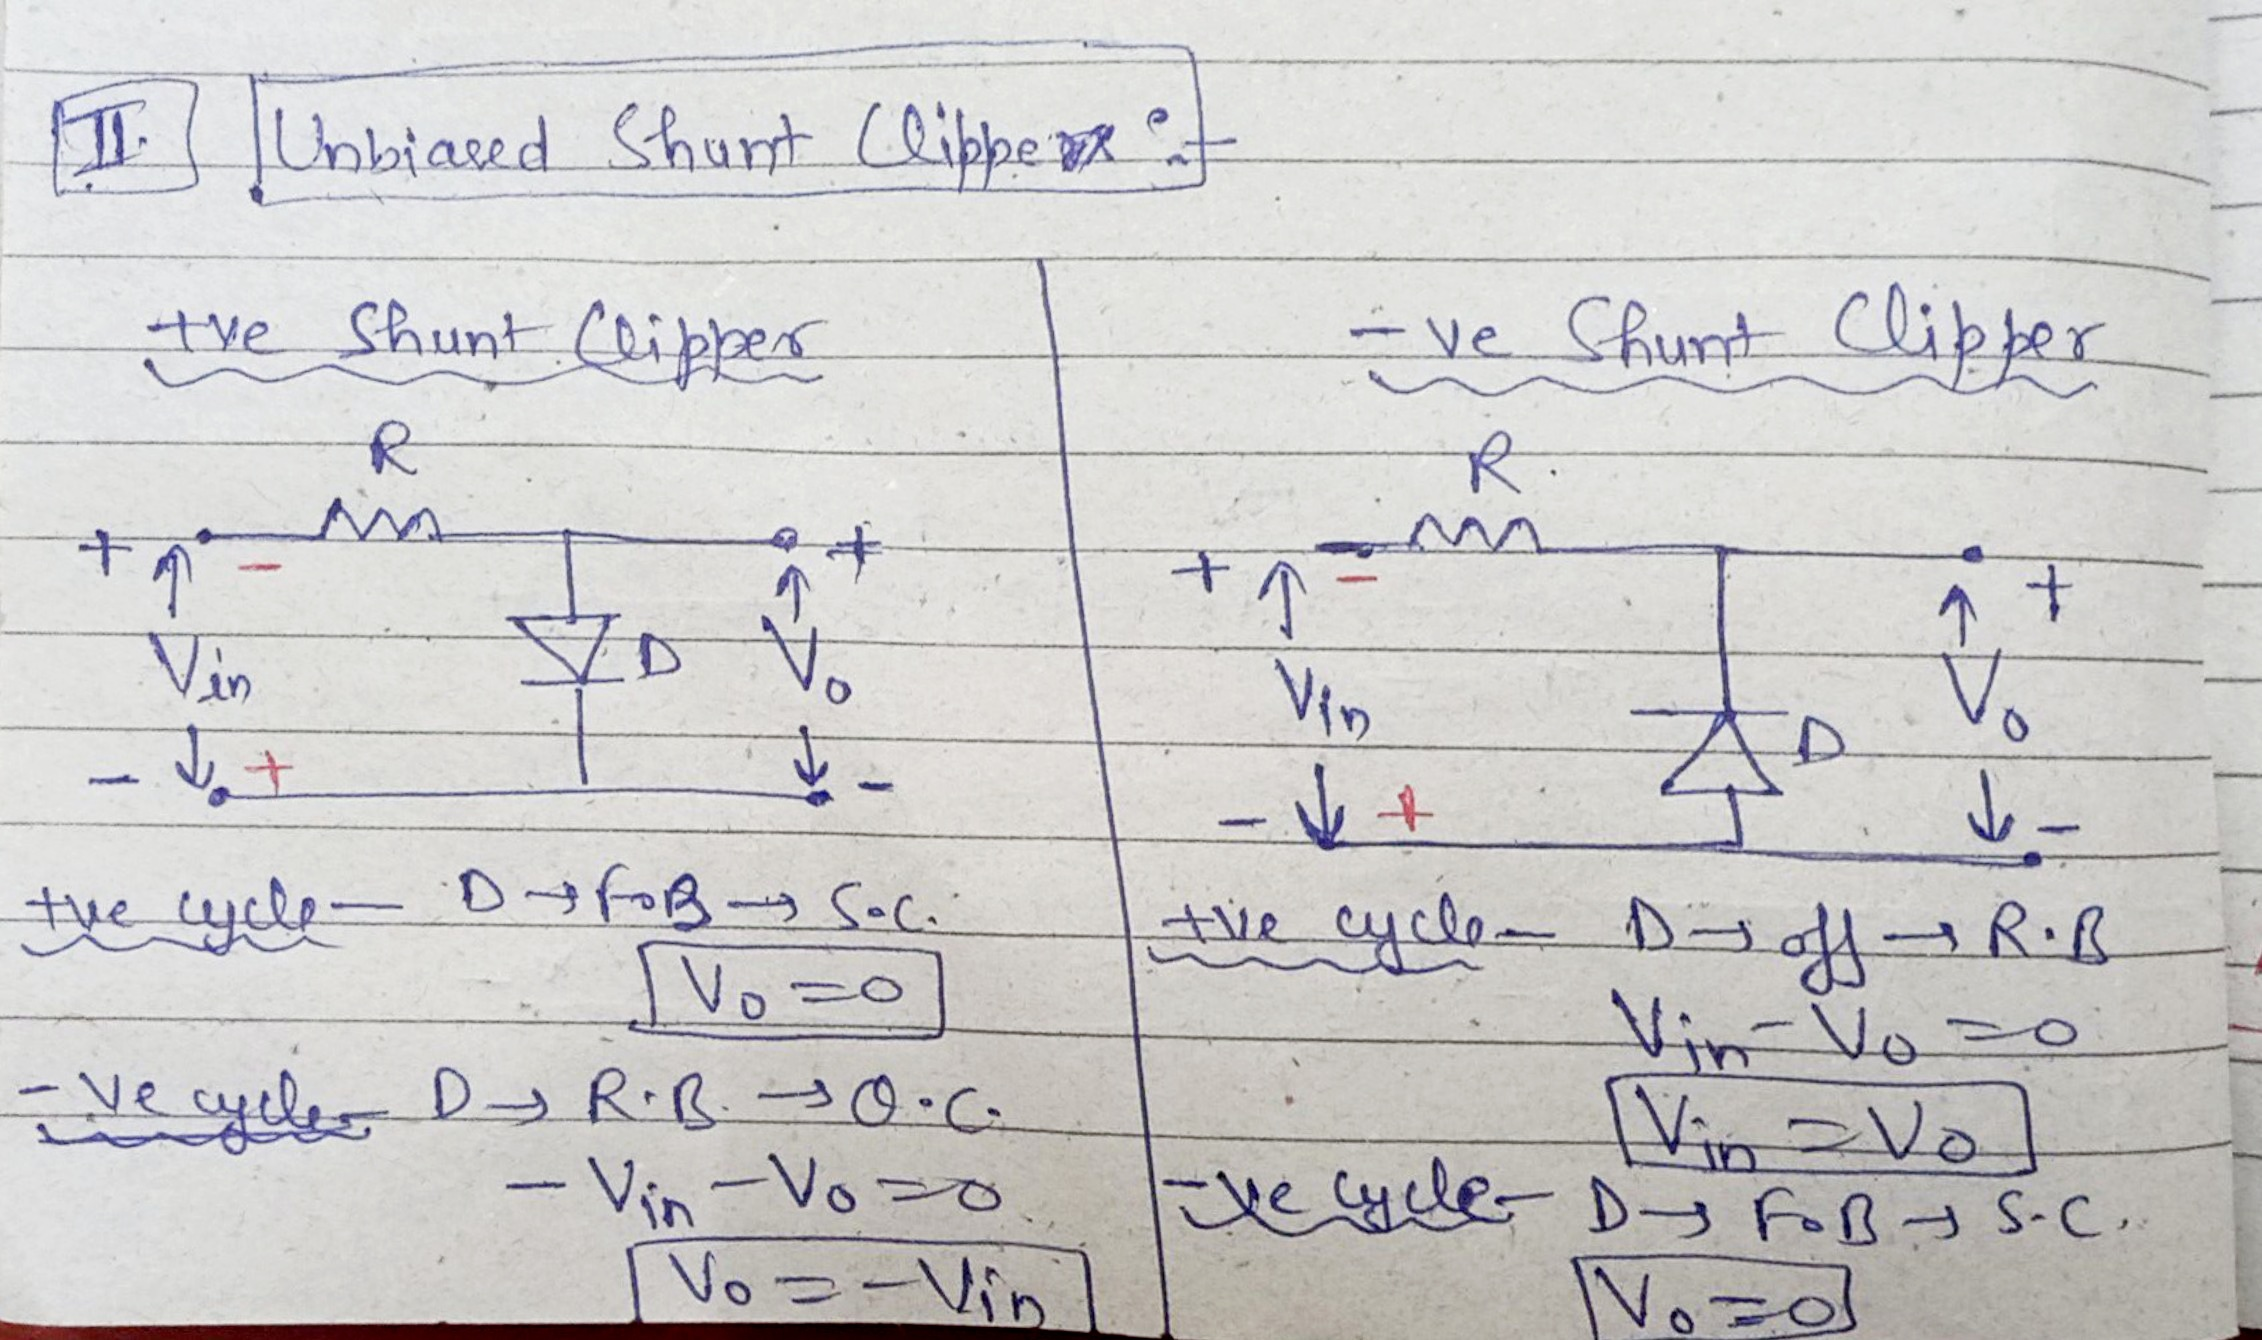 II. Unbiased Shunt Clipper :-
+ve Shunt Clipper
R
+ - +
Vin D Vo
- + -
+ve cycle - D → F.B → S.C.
Vo = 0
-ve cycle - D → R.B. → O.C.
- Vin - Vo = 0
Vo = - Vin
-ve Shunt Clipper
R
+ - +
Vin D Vo
- + -
+ve cycle - D → off → R.B
Vin - Vo = 0
Vin = Vo
-ve cycle - D → F.B → S.C.
Vo = 0